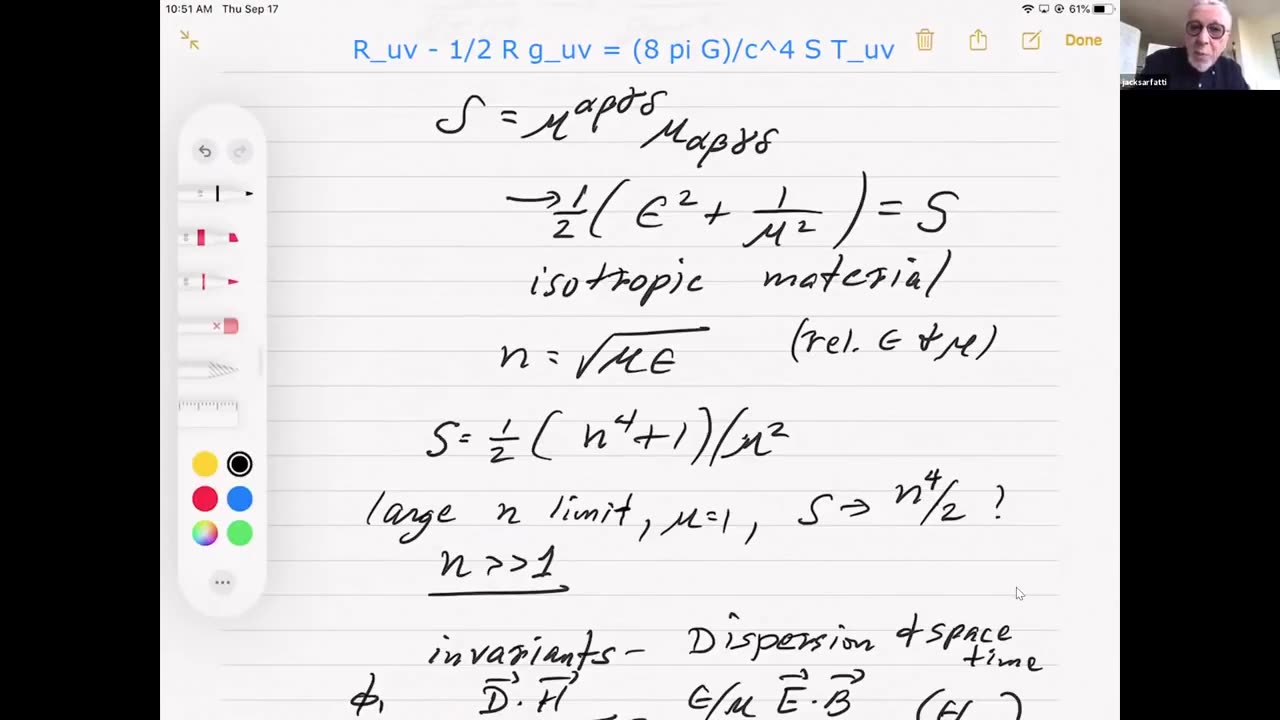 10:51 AM Thu Sep 17
61%
R_uv - 1/2 R g_uv = (8 pi G)/c^4 S T_uv
Done
jacksarfatti
S = μ^αβγδ μ_αβγδ
→ 1/2 ( ε² + 1/μ² ) = S
isotropic material
n = √με (rel. ε & μ)
S = 1/2 ( n⁴ + 1 ) / μ²
large n limit, μ=1, S → n⁴/2 ?
n >> 1
invariants - Dispersion of space
time
D⃗ · H⃗ ε/μ E⃗ · B⃗